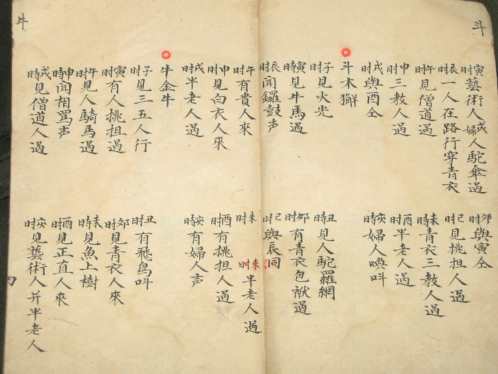 斗
寅时藝術人戌婦人駝傘過
卯时與寅仝
辰时一人在路行穿青衣
巳时見挑担人過
午时見僧道過
未时青衣三教人過
申时三教人過
酉时半老人過
戌时與酉仝
亥时婦人喚叫
斗木獬
子时見火光
丑时見人駝羅網
寅时見牛馬過
卯时有青衣包袱過
辰时聞鑼鼓声
巳时與辰同
午时有貴人來
未时半老人過
申时見白衣人來
酉时有挑担人過
戌时半老人過
亥时有婦人声
牛金牛
子时見三五人行
丑时有飛鳥叫
寅时有人挑担過
卯时見青衣人來
午时見人騎馬過
未时見魚上樹
申時聞相罵声
酉时見正直人來
戌時見僧道人過
亥时見藝術人并半老人
牛